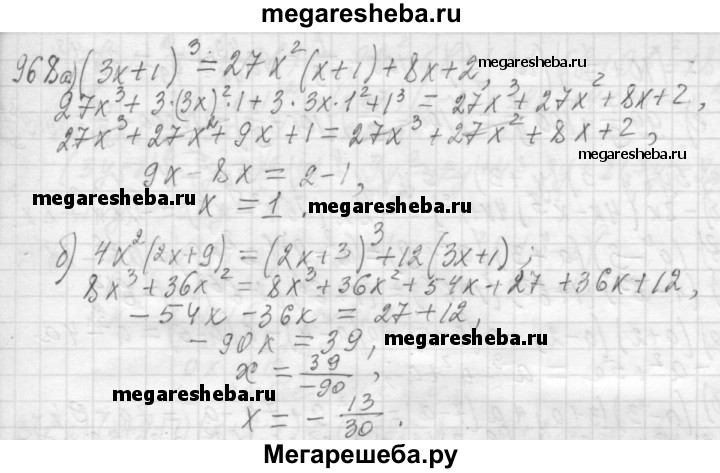 megaresheba.ru
968а) (3x+1)³ = 27x²(x+1)+8x+2, megaresheba.ru
27x³+3·(3x)²·1+3·3x·1²+1³ = 27x³+27x²+8x+2,
27x³+27x²+9x+1=27x³+27x²+8x+2,
megaresheba.ru
9x-8x = 2-1,
megaresheba.ru
x = 1. megaresheba.ru
б) 4x²(2x+9) = (2x+3)³+12(3x+1);
8x³+36x² = 8x³+36x²+54x+27+36x+12,
-54x-36x = 27+12,
-90x = 39, megaresheba.ru
x = 39/-90,
megaresheba.ru
x = -13/30.
Мегарешеба.ру